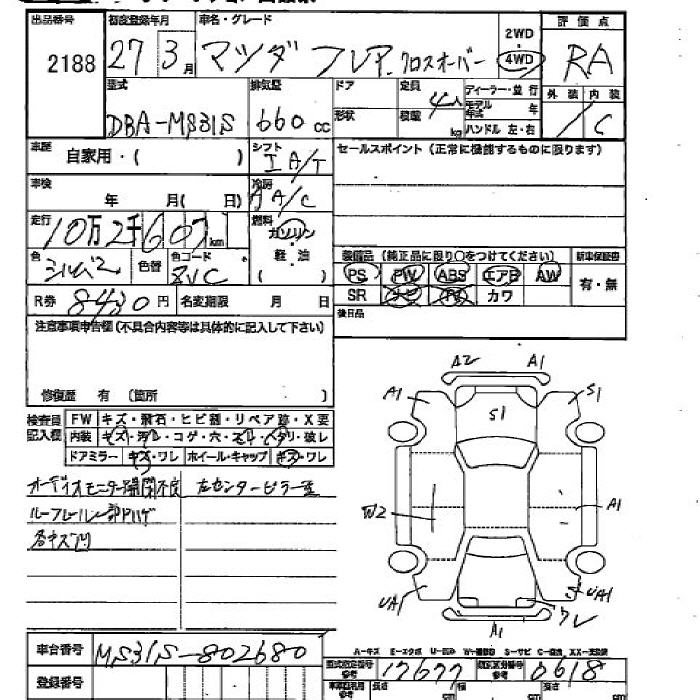 出品番号 初度登録年月 車名・グレード 2WD 評価点
2188 27 3月 マツダ フレア クロスオーバー 4WD RA
型式 排気量 ドア 定員 ディーラー・並行 外装 内装
DBA-MS31S 660cc 形状 積載 4人 kg モデル年式 年 ハンドル 左・右 C
車歴 自家用・( ) シフト IA/T セールスポイント (正常に機能するものに限ります)
車検 年 月( 日) 冷房 AA/C
走行 10万2千607km 燃料 ガソリン・軽油 ( )
色 シルバー 色替 色コード 装備品 (純正品に限り○をつけてください) 新車保証書
PS PW ABS エアB AW 有・無
R券 8430円 名変期限 月 日 SR ナビ TV カワ
注意事項申告欄 (不具合内容等は具体的に記入して下さい) 後日品
修復歴 有 〔箇所 〕
検査員記入欄 FW キズ・飛石・ヒビ割・リペア跡・X要
内装 キズ・汚レ・コゲ・穴・スレ・ヘタリ・破レ
ドアミラー キズ・ワレ ホイール・キャップ キズ・ワレ
オーディオモニター開閉不良 左センターピラー歪
ルーフレール一部Pハゲ
各キズ凹
A2 A1
A1 S1 S1
W2 A1
UA1 UA1
A1 ワレ
車台番号 MS31S-802680
A-キズ E-エクボ U-凹み W-補修跡 S-サビ C-腐食 XX-交換済
型式指定番号 参考 17677 類別区分番号 参考 0618
登録番号 長さ 幅 高さ